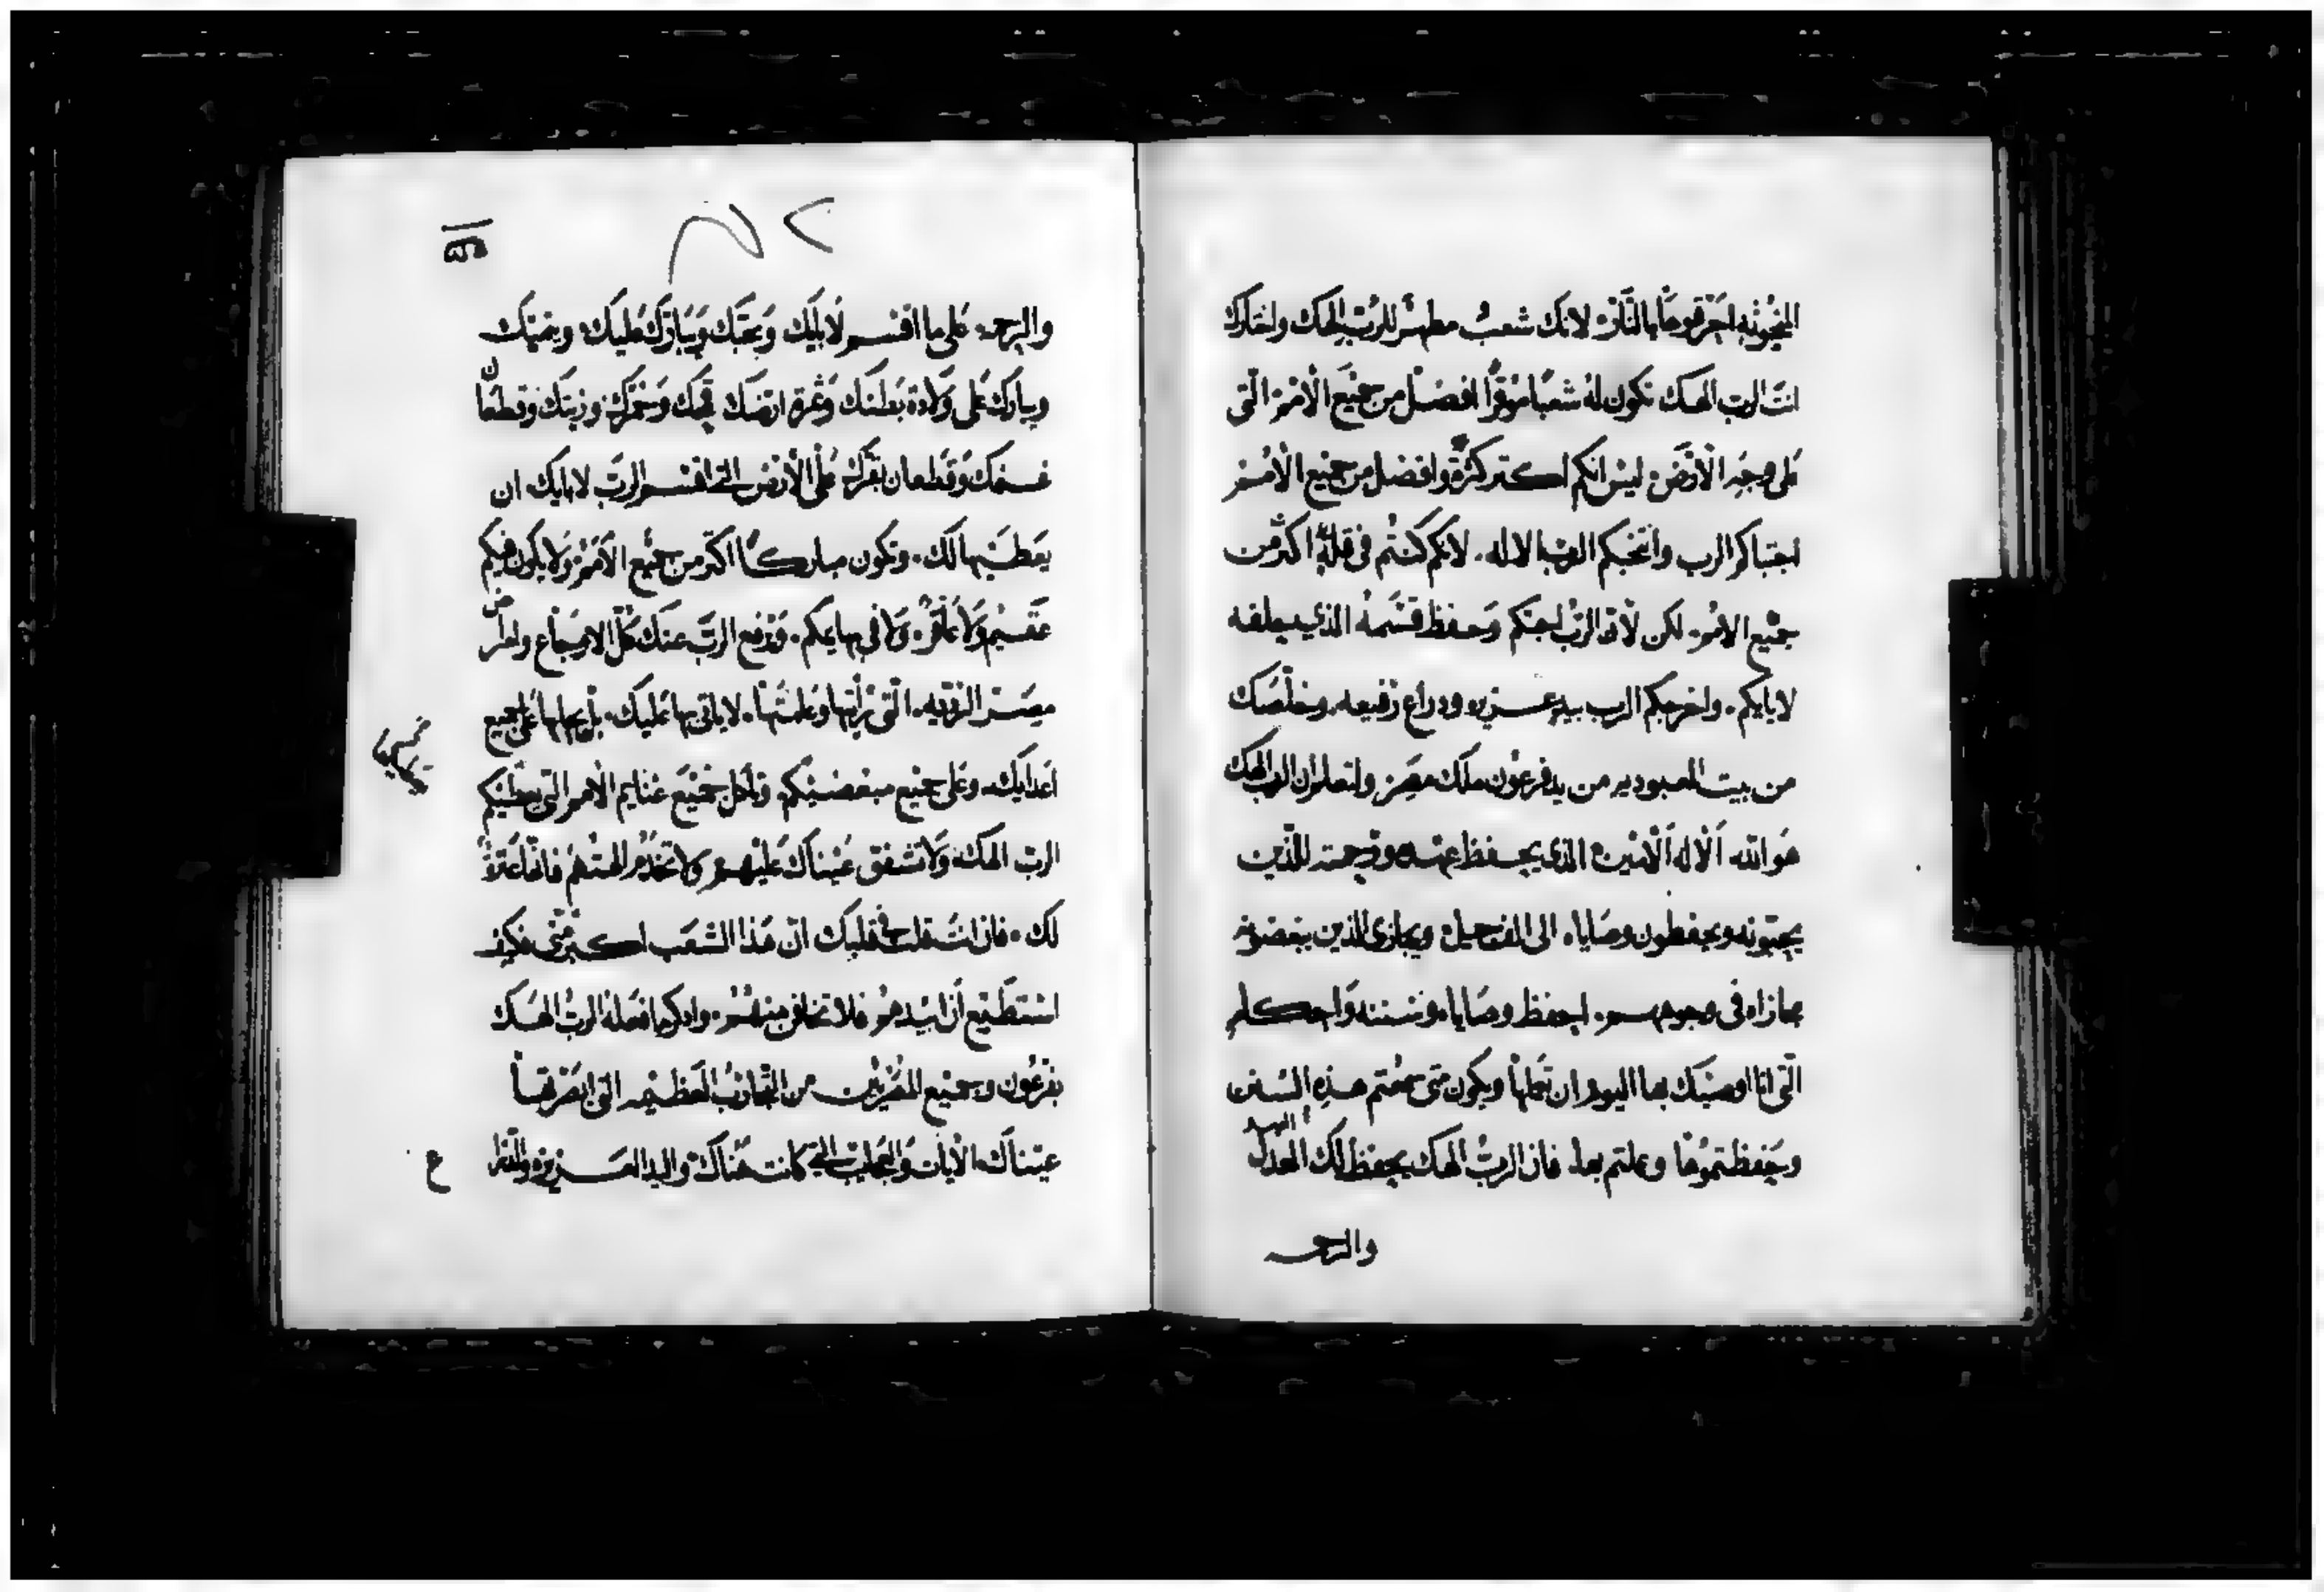 المنحوته احرقوها بالنار. لانك شعب مطهر للرب الهك واختارك
انت الرب الهك تكون له شعبا موقرا افضل من جميع الامم التى
على وجه الارض. ليس انكم اكتر كثرة وافضل من جميع الامم
اجتباكم الرب وانتخبكم الرب الاله. لانكم كنتم فى قلة اكثر من
جميع الامم. لكن لان الرب احبكم وحفظ قسمه الذي حلفه
لابايكم. واخرجكم الرب بيد عزيزه ودراع رفيعه. وخلصك
من بيت العبوديه من يد فرعون ملك مصر ولتعلم ان الرب الهك
هو الله الاله الامين الذى يحفظ عهده ورحمته للذين
يحبونه ويحفظون وصاياه الى الف جيل ويجازى الذين يبغضونه
مجازاه فى وجوههم. احفظ وصاياه وسننه واحكامه
التى انا اوصيك بها اليوم ان تعملها ويكون متى سمعتم هذه السنن
وحفظتموها وعملتم بها. فان الرب الهك يحفظ لك العهد
والرحمه
والرحمه. على ما اقسم لابايك ويحبك ويبارك عليك. وينميك
ويبارك على ولادة بطنك وثمرة ارضك قمحك وخمرك وزيتك وقطعان
غنمك وقطعان بقرك على الارض التى اقسم الرب لابايك ان
يعطيها لك. وتكون مباركا اكتر من جميع الامم ولا يكون فيكم
عقيم ولا عاقر. ولا فى بهايمكم. ويرفع الرب عنك كل الاوجاع وامراض
مصر الرديه. التى رايتها وعلمتها. لا ياتى بها عليك. بل يجعلها على جميع
اعدايك. وعلى جميع مبغضيكم. وتاكل جميع غنايم الامم التى يعطيكم
الرب الهك. ولا تشفق عيناك عليهم ولا تخدم الهتهم فانها عثرة
لك. فان انت قلت فى قلبك ان هذا الشعب اكتر منى فكيف
استطيع ان ابيدهم فلا تخاف منهم. وادكر ما فعله الرب الهك
بفرعون وجميع المصريين من التجارب العظيمه التى ابصرتها
عيناك. الايات والعجايب التى كانت هناك واليد العزيزه والذراع